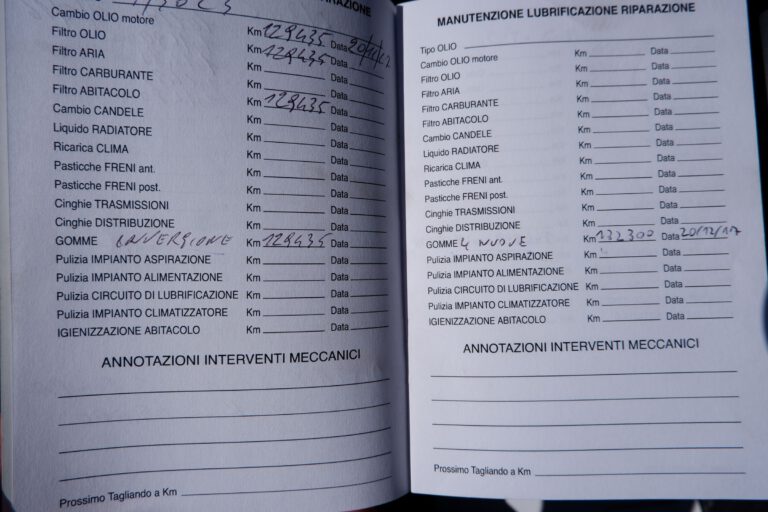 RIPARAZIONE
Cambio OLIO motore Km 129435 Data
Filtro OLIO Km 129435 Data
Filtro ARIA Km Data
Filtro CARBURANTE Km Data
Filtro ABITACOLO Km 129435 Data
Cambio CANDELE Km Data
Liquido RADIATORE Km Data
Ricarica CLIMA Km Data
Pasticche FRENI ant. Km Data
Pasticche FRENI post. Km Data
Cinghie TRASMISSIONI Km Data
Cinghie DISTRIBUZIONE Km Data
GOMME INVERSIONE Km 129435 Data
Pulizia IMPIANTO ASPIRAZIONE Km Data
Pulizia IMPIANTO ALIMENTAZIONE Km Data
Pulizia CIRCUITO DI LUBRIFICAZIONE Km Data
Pulizia IMPIANTO CLIMATIZZATORE Km Data
IGIENIZZAZIONE ABITACOLO Km Data
ANNOTAZIONI INTERVENTI MECCANICI
Prossimo Tagliando a Km
MANUTENZIONE LUBRIFICAZIONE RIPARAZIONE
Tipo OLIO
Cambio OLIO motore Km Data
Filtro OLIO Km Data
Filtro ARIA Km Data
Filtro CARBURANTE Km Data
Filtro ABITACOLO Km Data
Cambio CANDELE Km Data
Liquido RADIATORE Km Data
Ricarica CLIMA Km Data
Pasticche FRENI ant. Km Data
Pasticche FRENI post. Km Data
Cinghie TRASMISSIONI Km Data
Cinghie DISTRIBUZIONE Km Data
GOMME 4 NUOVE Km 132300 Data 20/12/17
Pulizia IMPIANTO ASPIRAZIONE Km Data
Pulizia IMPIANTO ALIMENTAZIONE Km Data
Pulizia CIRCUITO DI LUBRIFICAZIONE Km Data
Pulizia IMPIANTO CLIMATIZZATORE Km Data
IGIENIZZAZIONE ABITACOLO Km Data
ANNOTAZIONI INTERVENTI MECCANICI
Prossimo Tagliando a Km